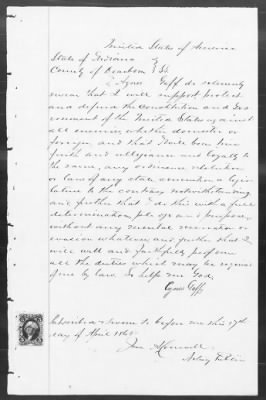 United States of America
State of Indiana
County of Dearborn } SS.
I Agnes Goff do solemnly
swear that I will support protect
and defend the Constitution and Gov
ernment of the United States against
all enemies, whether domestic or
foreign, and that I will bear true
faith and allegiance and loyalty to
the same, any ordinance resolution
or law of any state convention or legis
lature to the contrary notwithstanding
and further that I do this with a full
determination, pledge and purpose
without any mental reservation or
evasion whatever and further that I
will well and faithfully perform
all the duties which may be required
of me by law So help me God.
Goff
Subscribed & sworn to before me this 17th
day of April 186
Notary Public